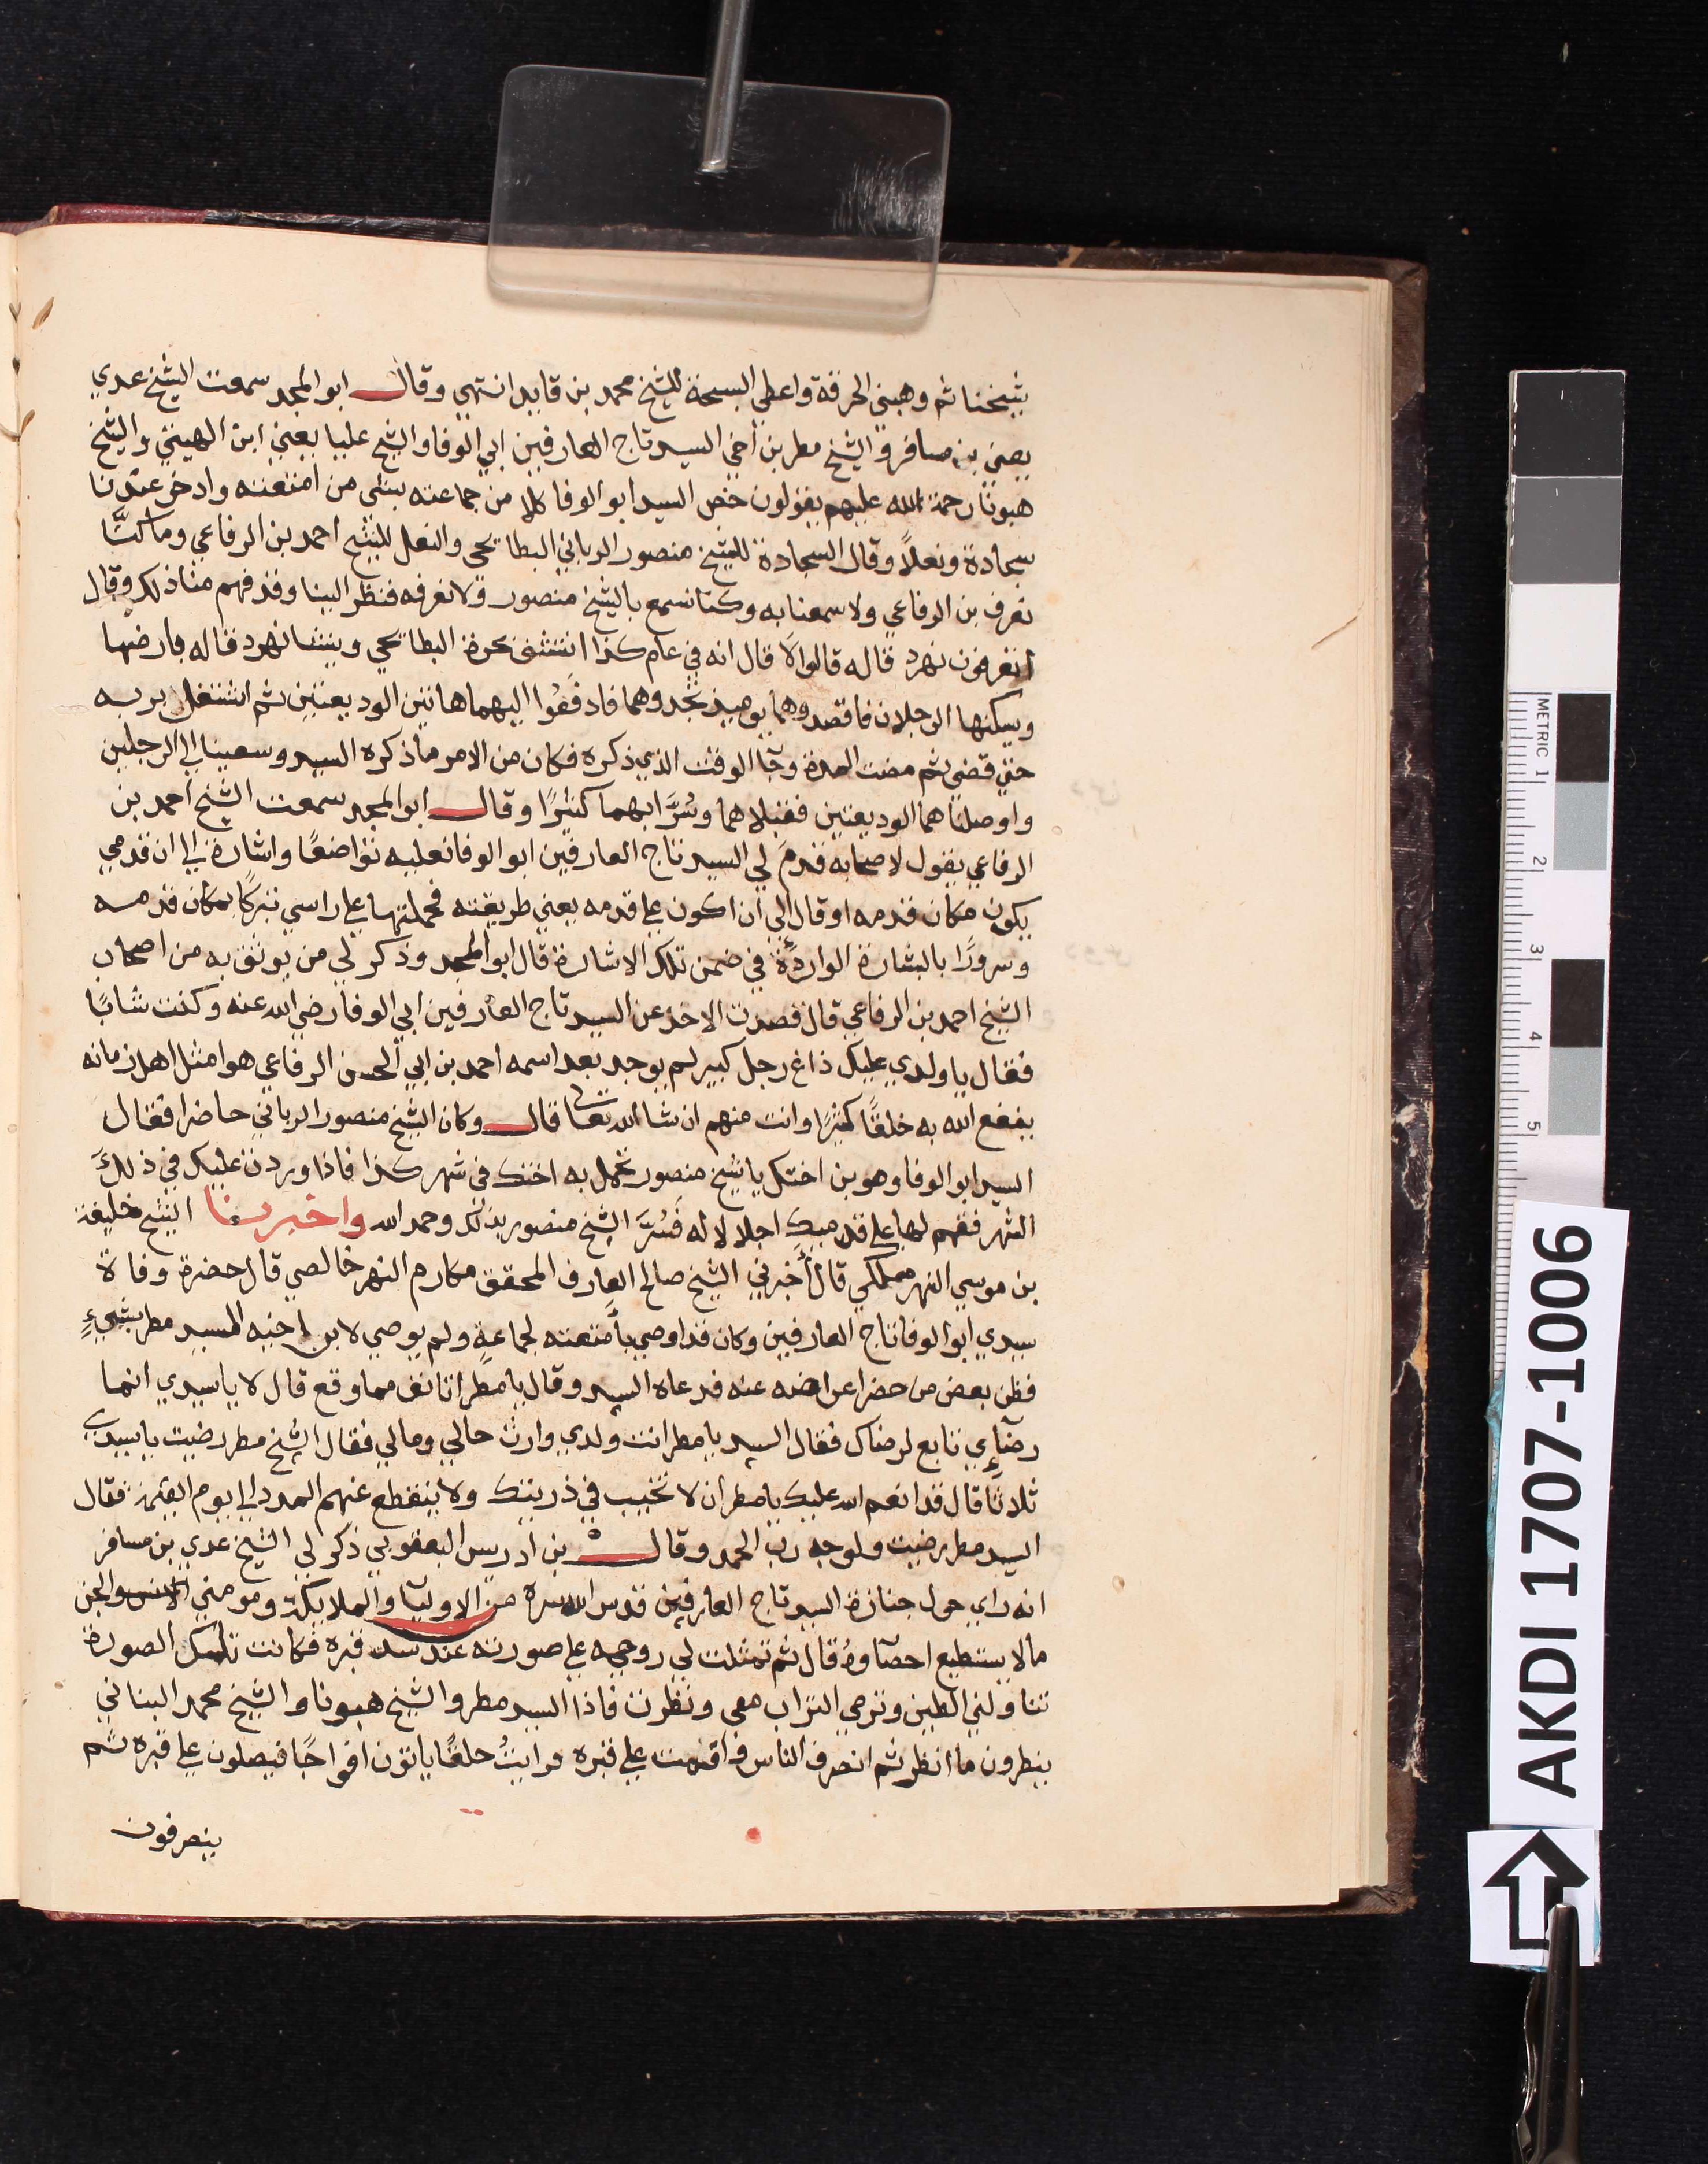 شيخنا ثم وهبني الخرقة واعطي السبحة للشيخ محمد بن قايد انتهي وقال ابو المجد سمعت الشيخ عدي
يعني بن مسافر و الشيخ مطر بن أخي السيد تاج العارفين ابي الوفا والشيخ عليا يعني ابن الهيتي والشيخ
هبونا رحمة الله عليهم يقولون خص السيد ابو الوفا كلا من جماعته بشي من امتعته وادخر عندنا
سجادة ونعلاً وقال السجادة للشيخ منصور الرباني البطايحي والنعل للشيخ احمد بن الرفاعي وما كنَّا
نعرف بن الرفاعي ولا سمعنا به وكنا نسمع بالشيخ منصور ولا نعرفه فنظر الينا وقد فهم منا ذلك وقال
اتعرفون نهرد قاله قالوا لَا قال انه في عام كذا انتشئ نحوة البطايحي وينشا نهرد قاله بارضها
ويسكنها الرجلان فاقصدوهما يوميذ تجدوهما فادفَعُوا اليهما هاتين الوديعتين ثم اشتغل بربه
حتي قضي ثم مضت المدة وجآ الوقت الذي ذكره فكان من الامر ما ذكره السيد وسعينا الي الرجلين
واوصلنا هما الوديعتين فقبلا هما وسُرَّا بهما كثيرًا وقال ابو المجد سمعت الشيخ احمد بن
الرفاعي يقول لاصحابه قدمَ لي السيد تاج العارفين ابو الوفا نعليه تواضعًا واشارة الي ان قدمي
يكون مكان قدمه او قال الي أن اكون علي قدمه يعني طريقته فحملتها علي راسي تبركًا بمكان قدمه
وسرورًا بالبشارة الواردة في ضمن تلك الاشارة قال ابو المجد وذكر لي من يوثق به من اصحاب
الشيخ احمد بن الرفاعي قال قصدت الاخذ عن السيد تاج العارفين ابي الوفا رضي الله عنه وكنت شابًا
فقال يا ولدي عليك ذاغ رجل كبير لم يوجد بعد اسمه احمد بن ابي الحسن الرفاعي هو امثل اهل زمانه
ينفع الله به خلقًا كثيرًا وانت منهم ان شا الله تعالى قال وكان الشيخ منصور الرباني حاضرا فقال
السيد ابو الوفا وهو بن اختك يا شيخ منصور تحمل به اختك في شهر كذا فاذا وردت عليك في ذلكَ
الشهر فقم لها علي قدميك اجلالا له فَسُرَّ الشيخ منصور بذلك وحمد الله واخبرنا الشيخ خليفة
بن موسي النهرمملكي قال أخبرني الشيخ صالح العارف المحقق مكارم النهر خالصي قال حضرة وفاة
سيدي ابو الوفا تاج العارفين وكان قد اوصي بأمتعته لجماعةٍ ولم يوصي لابن اخيه السيد مطر بشيءٍ
فظن بعض من حضر اعراضه عنه فدعاه السيد وقال يا مطر اتانف مما وقع قال لا يا سيدي انما
رضآءي تابع لرضاك فقال السيد يا مطر انت ولدي وارث حالي ومالي فقال الشيخ مطر رضيت يا سيدي
ثلاثا قال قد انعم الله عليك يا مطر ان لا تخيب في ذريتك ولا ينقطع عنهم المدد الي يوم القيمة فقال
السيد مطر رضيت ولوجه رب الحمد وقال بن ادريس اليعقوبي ذكر لي الشيخ عدي بن مسافر
انه راي حول جنازة السيد تاج العارفين قدس الله سره من الاوليآ والملايكة ومومني الانس والجن
مالا يستطيع احصآوهُ قال ثم تمثلت لي روحه علي صورته عند سد قبره فكانت تلك الصورة
تناولني الطين وترمي التراب معي ونظرت فاذا السيد مطر والشيخ هبونا والشيخ محمد البناني
ينظرون ما انظر ثم انصرف الناس واقمت علي قبره ورايتُ خلقًا ياتون افواجًا فيصلون علي قبره ثم
ينصرفون
AKDI 1707-1006
METRIC 1 2 3 4 5